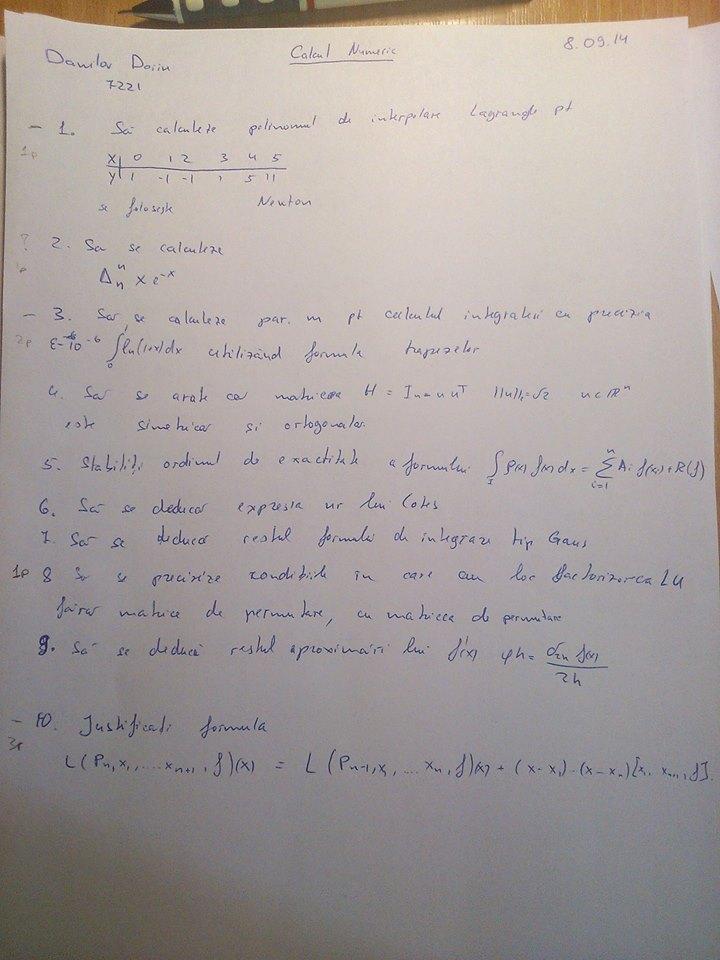 Danilov Dorin
Calcul Numeric
8.09.14
7221
- 1. Să calculeze polinomul de interpolare Lagrange pt
1p
x | 0 1 2 3 4 5
y | 1 -1 -1 1 5 11
se folosește Newton
? 2. Sa se calculeze
Δⁿₕ x e⁻ˣ
- 3. Să se calculeze par. m pt calculul integralei cu precizia
2p ε=10⁻⁶ ∫₀¹ ln(1+x)dx utilizând formula trapezelor
4. Să se arate că matricea H = In - u uᵀ ||u||₂=√2 u∈ℝⁿ
este simetrică și ortogonală
5. Stabiliți ordinul de exactitate a formulei ∫ ρ(x) f(x) dx = Σ Ai f(xi) + R(f)
6. Să se deducă expresia nr lui Cotes
7. Să se deducă restul formulei de integrare tip Gauss
1p 8 Să se precizeze condițiile în care are loc factorizarea LU
fără matrice de permutare, cu matricea de permutare
9. Să se deducă restul aproximării lui f'(x) φh = δ₂ₕ f(x) / 2h
- 10. Justificați formula
L(Pn, x1, .... xn+1, f)(x) = L(Pn-1, x1, ... xn, f)(x) + (x-x1)..(x-xn)[x1.. xn+1, f].